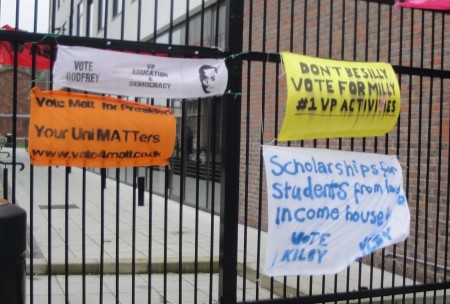 VOTE
GODFREY
VP
EDUCATION
&
DEMOCRACY
Vote Matt for President
Your Uni MATTers
www.vote4matt.co.uk
DON'T BE SILLY
VOTE FOR MILLY
#1 VP ACTIVITIES
Scholarships for
students from low
income house
VOTE
KILBY